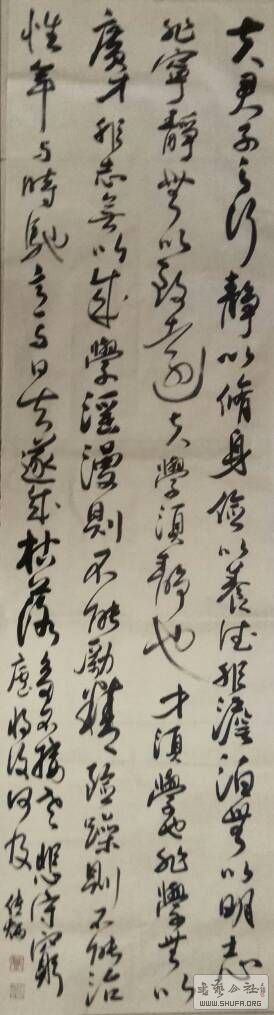 夫君子之行靜以脩身儉以養德非澹泊無以明志
非寧靜無以致遠夫學須靜也才須學也非學無以
廣才非志無以成學淫漫則不能勵精險躁則不能治
性年与時馳意与日去遂成枯落多不接世悲守窮
廬將復何及
书艺公社
WWW.SHUFA.ORG